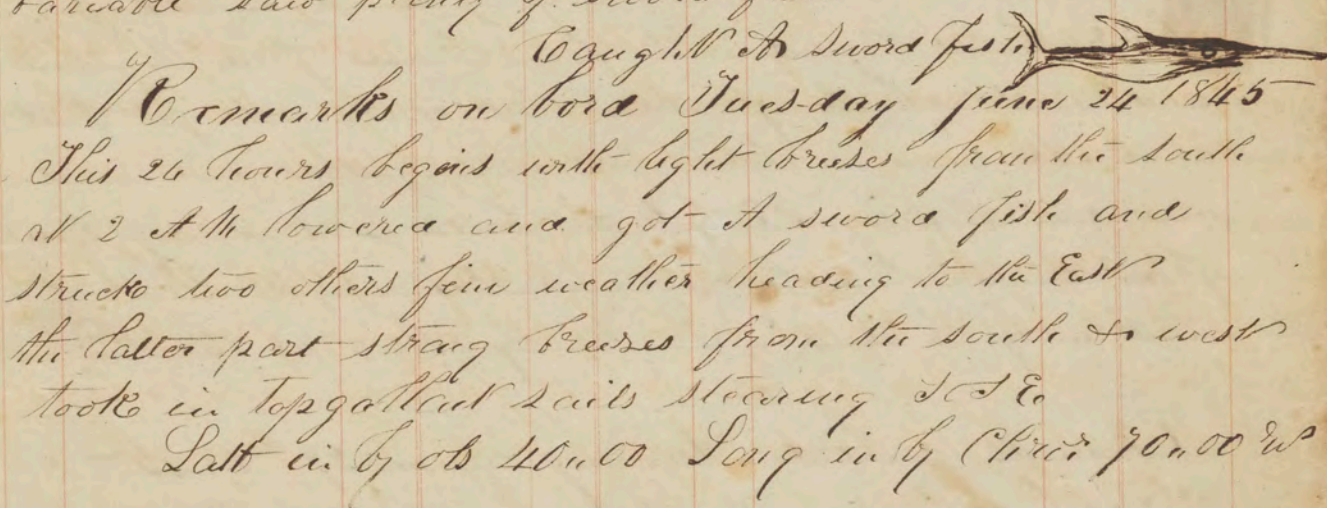 variable saw plenty of sword
Caught A sword fish
Remarks on bord Tuesday June 24 1845
This 24 hours begins with light breeses from the south
at 2 AM lowered and got A sword fish and
struck two others fine weather heading to the East
the latter part strong breeses from the south & west
took in topgallant sails stearing S S E
Latt in by ob 40,,00 Long in by Chro 70,,00 W